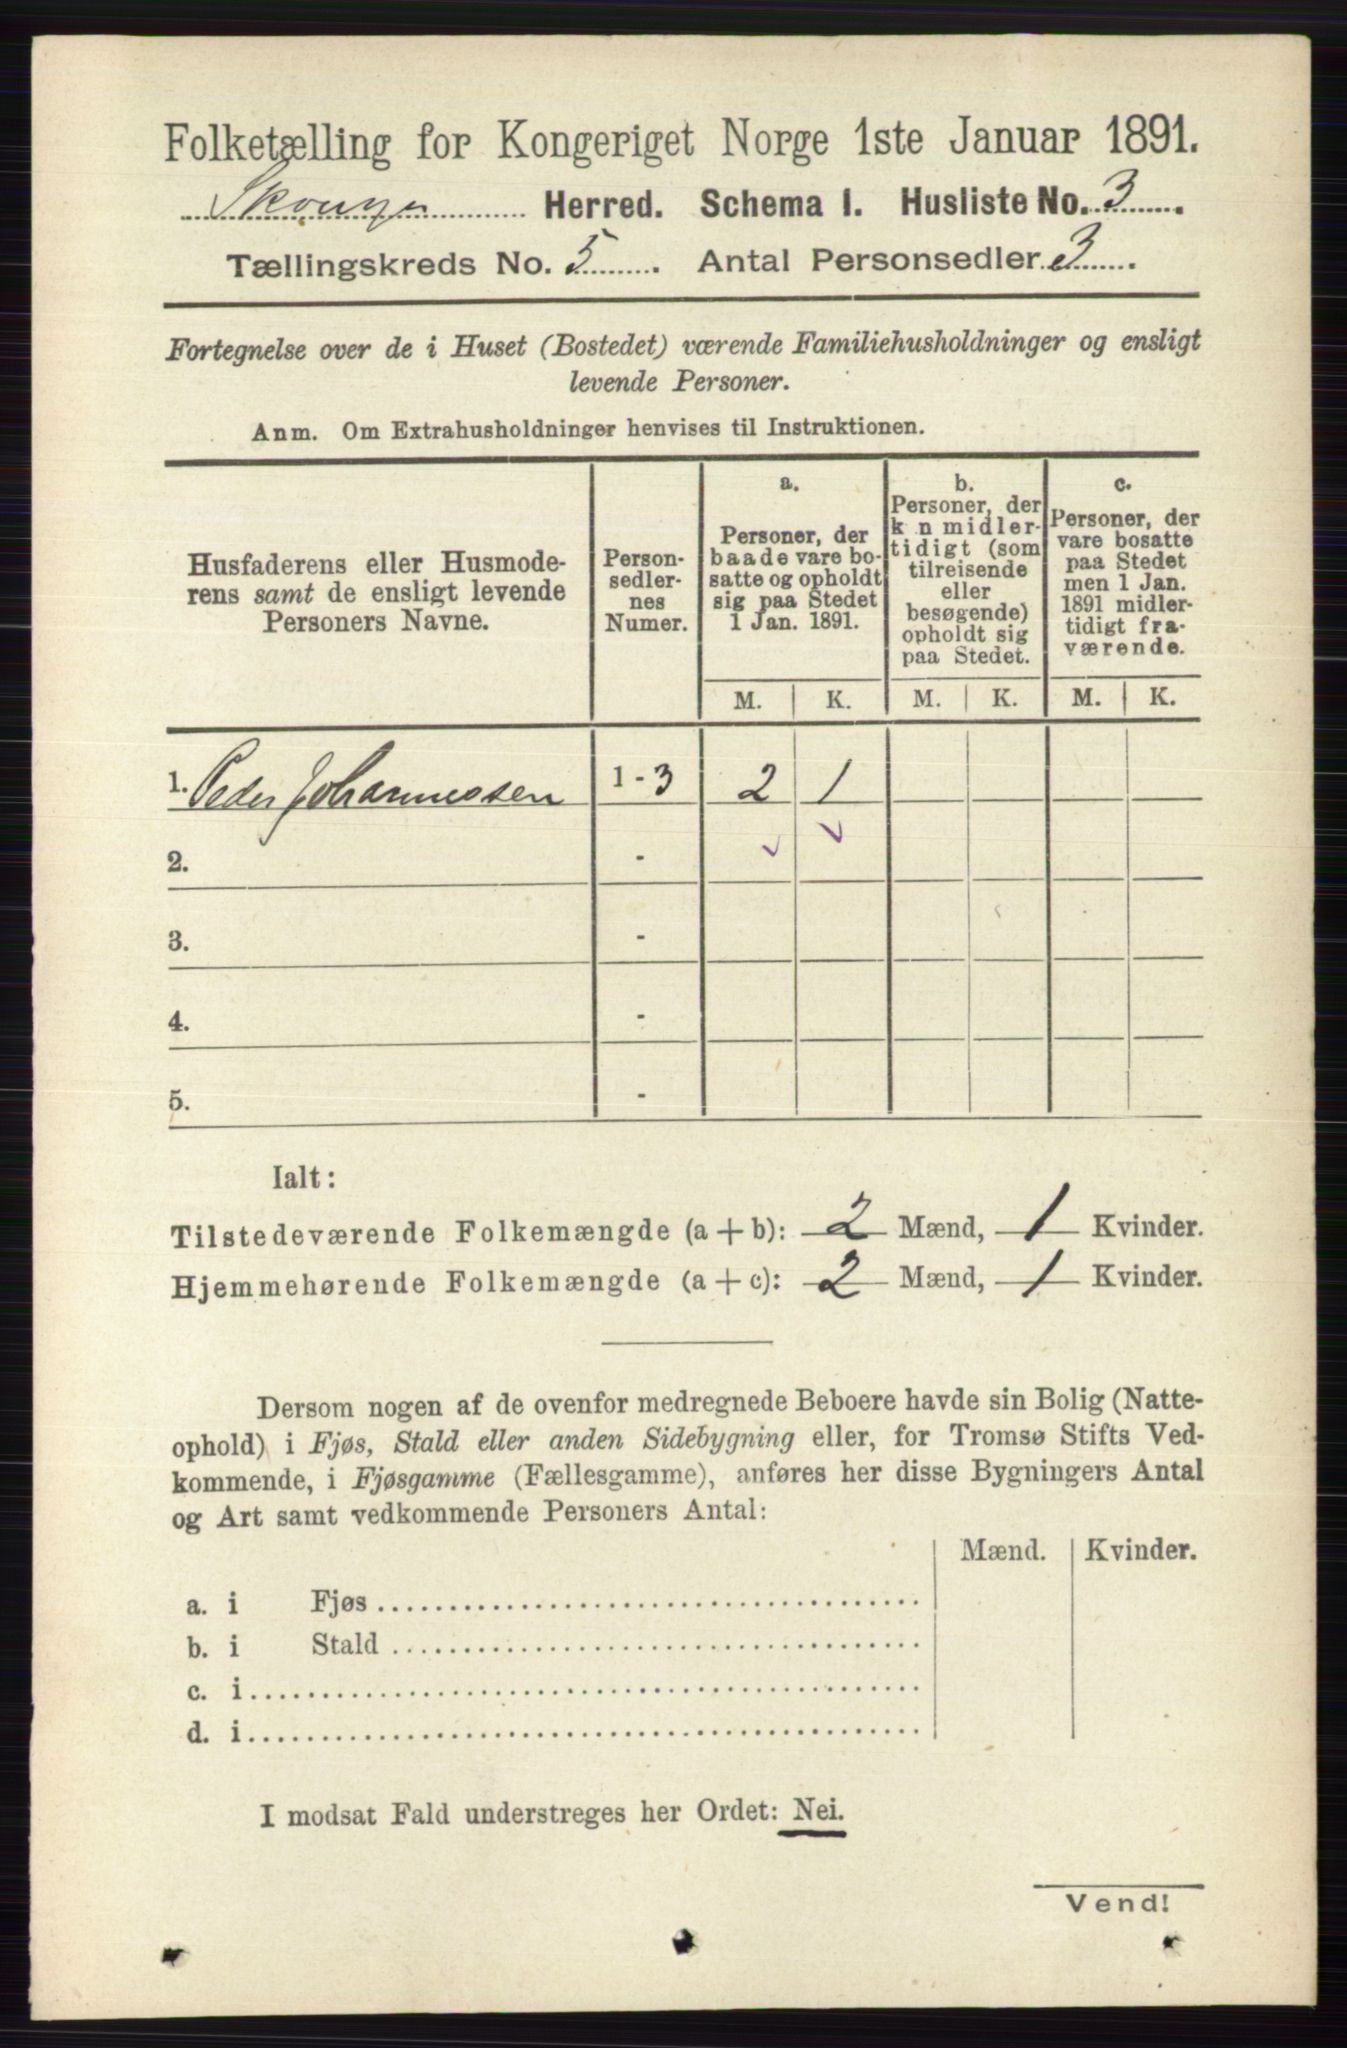 Folketælling for Kongeriget Norge 1ste Januar 1891.
Skouger Herred. Schema I. Husliste No. 3.
Tællingskreds No. 5. Antal Personsedler 3.
Fortegnelse over de i Huset (Bostedet) værende Familiehusholdninger og ensligt
levende Personer.
Anm. Om Extrahusholdninger henvises til Instruktionen.
Husfaderens eller Husmode-
rens samt de ensligt levende
Personers Navne.
Person-
sedler-
nes
Numer.
a.
Personer, der
baade vare bo-
satte og opholdt
sig paa Stedet
1 Jan. 1891.
b.
Personer, der
k n midler-
tidigt (som
tilreisende
eller
besøgende)
opholdt sig
paa Stedet.
c.
Personer, der
vare bosatte
paa Stedet
men 1 Jan.
1891 midler-
tidigt fra-
værende.
M. K. M. K. M. K.
1. Peder Johannessen 1-3 2 1
2. -
3. -
4. -
5. -
Ialt:
Tilstedeværende Folkemængde (a + b): 2 Mænd, 1 Kvinder.
Hjemmehørende Folkemængde (a + c): 2 Mænd, 1 Kvinder.
Dersom nogen af de ovenfor medregnede Beboere havde sin Bolig (Natte-
ophold) i Fjøs, Stald eller anden Sidebygning eller, for Tromsø Stifts Ved-
kommende, i Fjøsgamme (Fællesgamme), anføres her disse Bygningers Antal
og Art samt vedkommende Personers Antal:
Mænd. Kvinder.
a. i Fjøs
b. i Stald
c. i
d. i
I modsat Fald understreges her Ordet: Nei.
Vend!